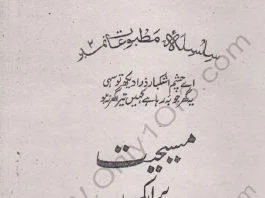 سلسلۂ مطبوعات نمبر ۲
اے چشم اشکبار ذرا دیکھ تو سہی
یہ گھر جو بہ رہا ہے کہیں تیرا گھر نہ ہو
مسیحیت
Only1Or3.com